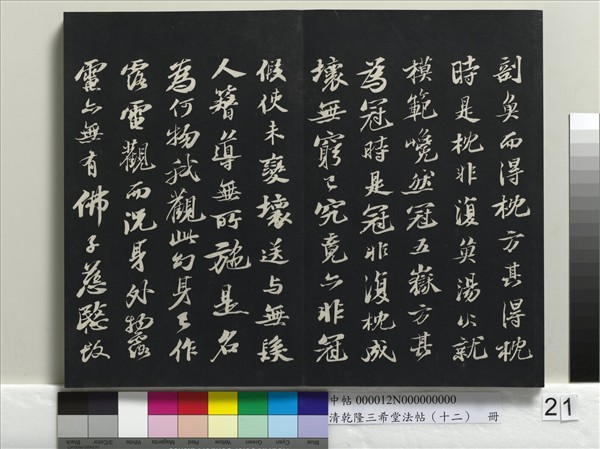 剖魚而得枕方其得枕
時是枕非復魚湯火就
模範巉然冠五嶽方其
為冠時是冠非復枕成
壞無窮已究竟亦非冠
假使未變壞送與無髮
人簪導無所施是名
為何物我觀此幻身已作
露電觀而況身外物露
電亦無有佛子慈愍故
中帖 000012N000000000
清乾隆三希堂法帖(十二) 冊
21
Blue Cyan Green Yellow Red Magenta White 3/Color Black